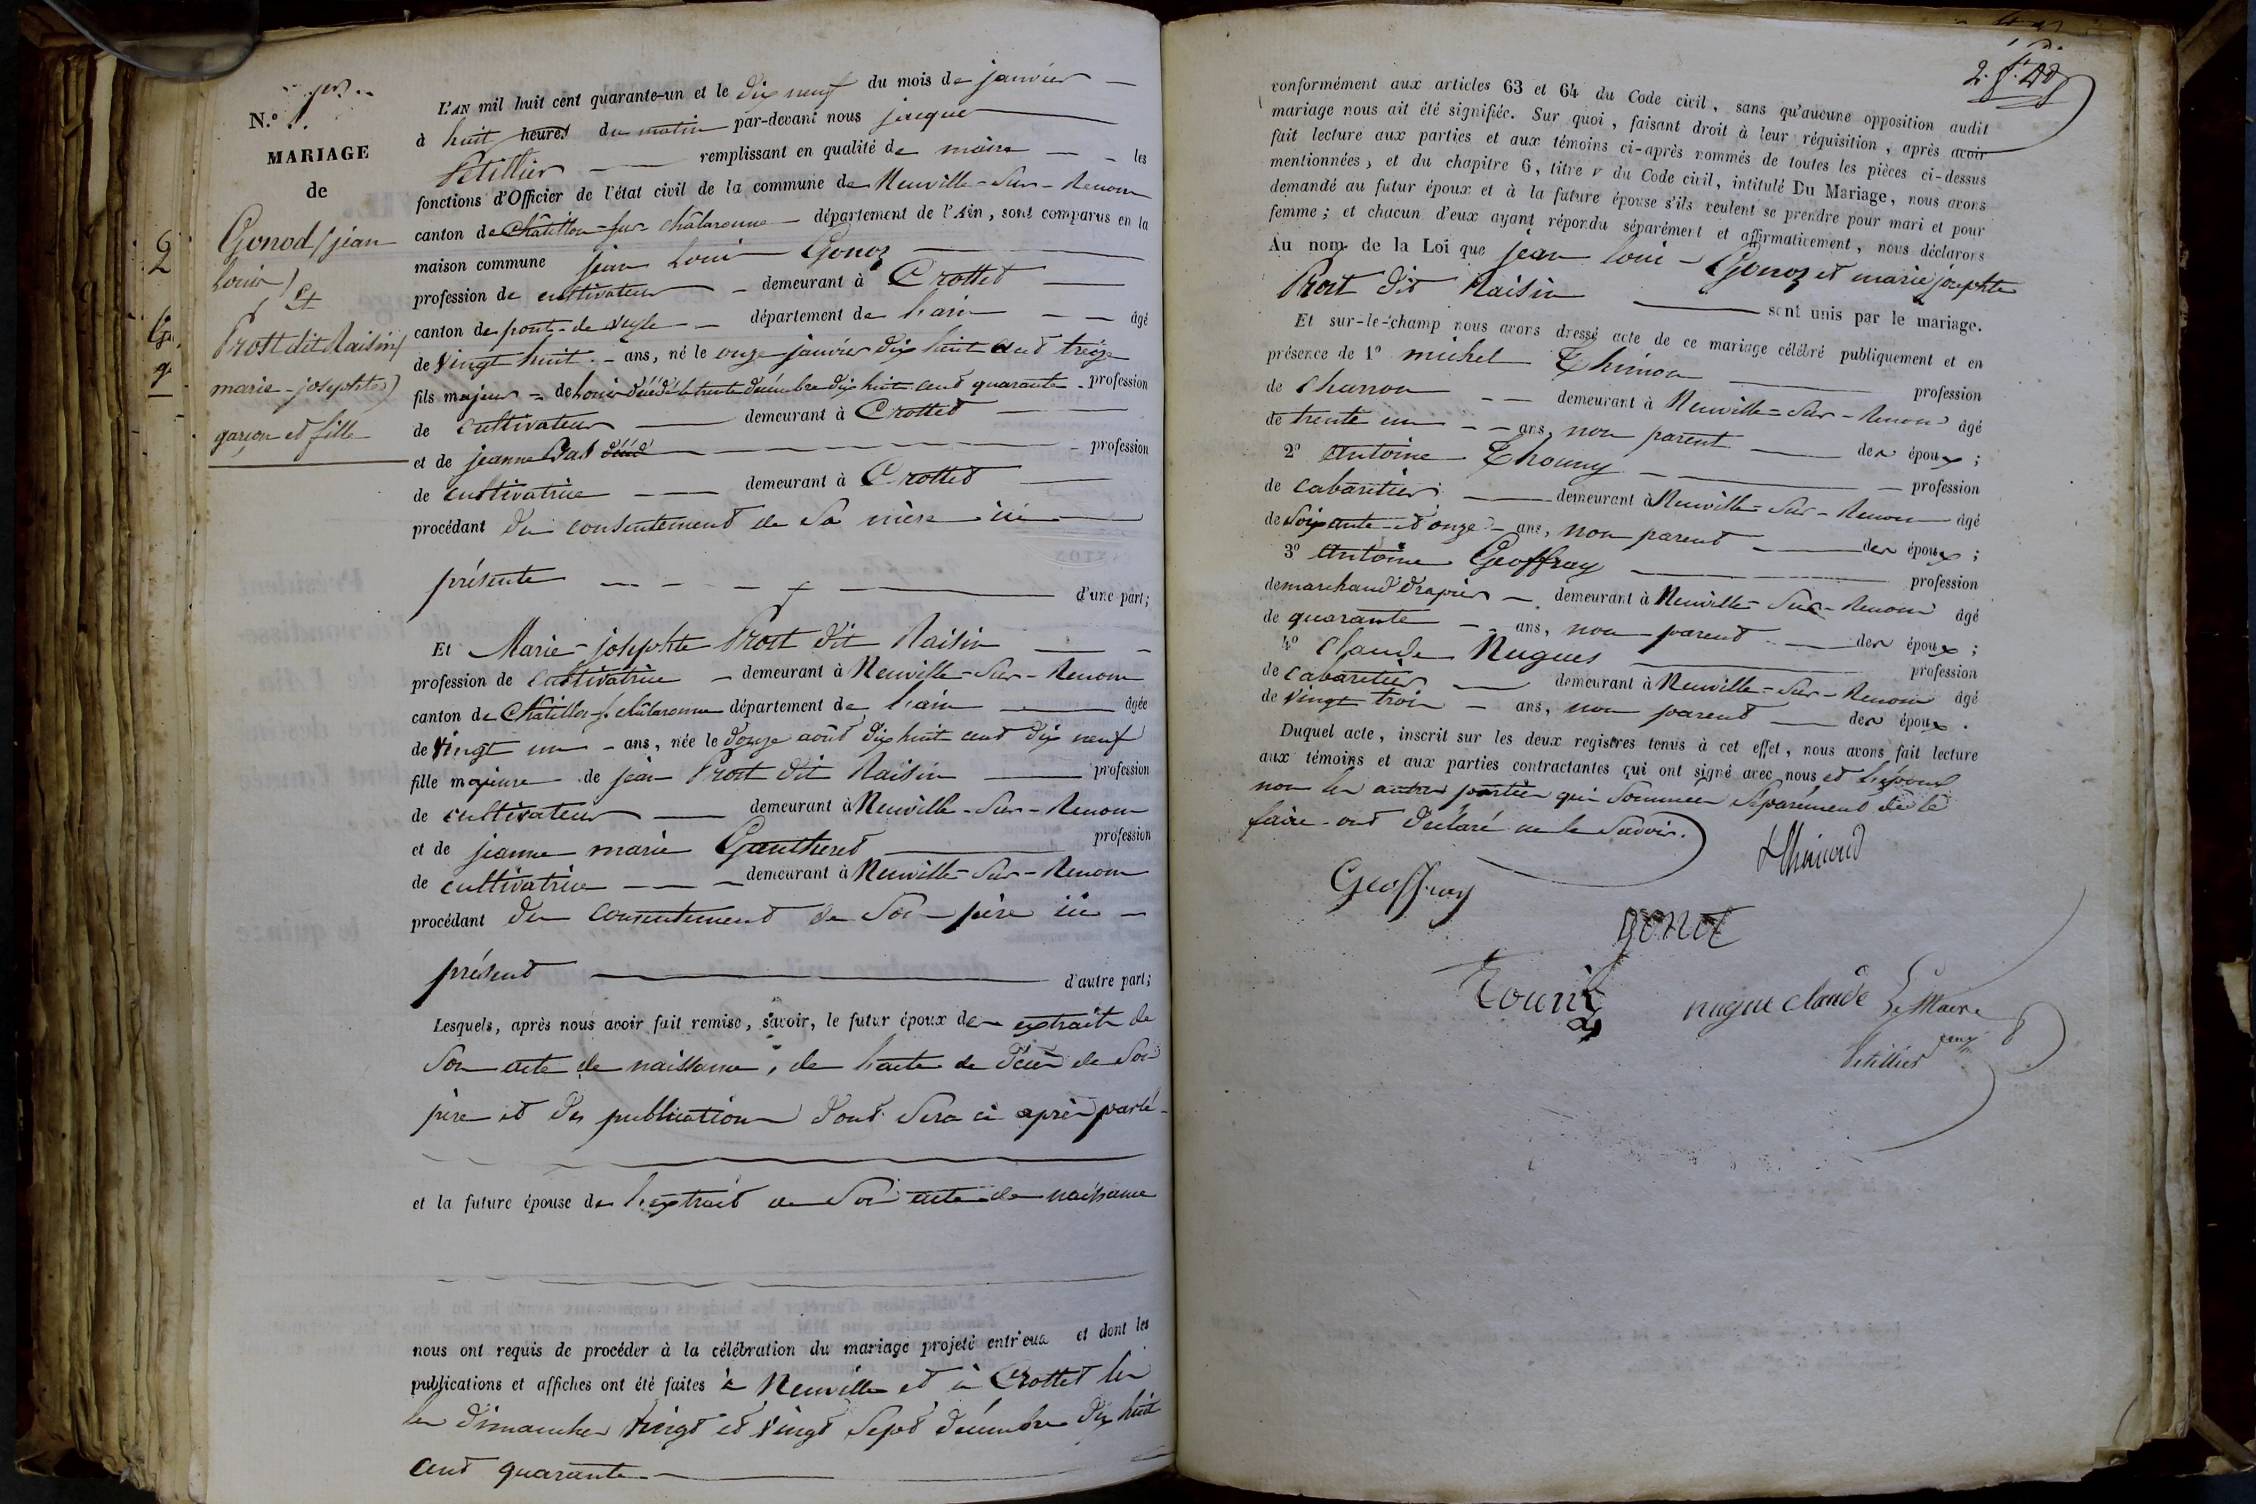 N.º 1er
MARIAGE
de
Gonod (jean
Louis)
Et
Prost dit Raisin (
marie-josephte)
garçon et fille
L'AN mil huit cent quarante-un et le dix neuf du mois de janvier
à huit heures du matin par-devant nous jacque
Petillier remplissant en qualité de maire les
fonctions d'Officier de l'état civil de la commune de Neuville-Sur-Renom
canton de Châtillon-sur-châlaronne département de l'Ain, sont comparus en la
maison commune jean Loui Gonoz
profession de cultivateur demeurant à Crottet
canton de pont-de veyle département de l'ain âgé
de vingt huit ans, né le onze janvier dix huit cent treize
fils majeur de Louis décédé le trente décembre dix huit cent quarante profession
de cultivateur demeurant à Crottet
et de jeanne profession
de cultivatrice demeurant à Crottet
procédant du consentement de Sa mère ici
présente d'une part;
Et Marie-josephte Prost dit Raisin
profession de cultivatrice demeurant à Neuville-Sur-Renom
canton de Châtillon-s. châlaronne département de l'ain âgée
de vingt un ans, née le douze août dix huit cent dix neuf
fille majeure de jean Prost dit Raisin profession
de cultivateur demeurant à Neuville-Sur-Renom
et de jeanne marie Gautheret profession
de cultivatrice demeurant à Neuville-Sur-Renom
procédant du consentement de Son père ici
présent d'autre part;
Lesquels, après nous avoir fait remise, savoir, le futur époux de extrait de
Son acte de naissance, de l'acte de décès de Son
père et des publications dont Sera ci après parlé
et la future épouse de l'extrait de Son acte de naissance
nous ont requis de procéder à la célébration du mariage projeté entr'eux et dont les
publications et affiches ont été faites à Neuville et à Crottet les
les dimanches vingt et vingt Sept décembre dix huit
cent quarante
2.
conformément aux articles 63 et 64 du Code civil, sans qu'aucune opposition audit
mariage nous ait été signifiée. Sur quoi, faisant droit à leur réquisition, après avoir
fait lecture aux parties et aux témoins ci-après nommés de toutes les pièces ci-dessus
mentionnées, et du chapitre 6, titre v du Code civil, intitulé Du Mariage, nous avons
demandé au futur époux et à la future épouse s'ils veulent se prendre pour mari et pour
femme; et chacun d'eux ayant répondu séparément et affirmativement, nous déclarons
Au nom de la Loi que jean Loui Gonoz et marie josephte
Prost dit Raisin sont unis par le mariage.
Et sur-le-champ nous avons dressé acte de ce mariage célébré publiquement et en
présence de 1º michel Thimon profession
de charron demeurant à Neuville-Sur-Renom âgé
de trente un ans, non parent des époux;
2º Antoine Thouny profession
de cabaretier demeurant à Neuville-Sur-Renom âgé
de Soixante-et onze ans, non parent des époux;
3º Antoine Geoffray profession
de marchand drapier demeurant à Neuville-Sur-Renom âgé
de quarante ans, non parent des époux;
4º Claude Nugues profession
de cabaretier demeurant à Neuville-Sur-Renom âgé
de vingt trois ans, non parent des époux.
Duquel acte, inscrit sur les deux registres tenus à cet effet, nous avons fait lecture
aux témoins et aux parties contractantes qui ont signé avec nous et l'époux
non les autres parties qui Sommées Séparément de le
faire ont déclaré ne le Savoir.
Geoffray
gonot
nugue claude Le Maire
Petillier